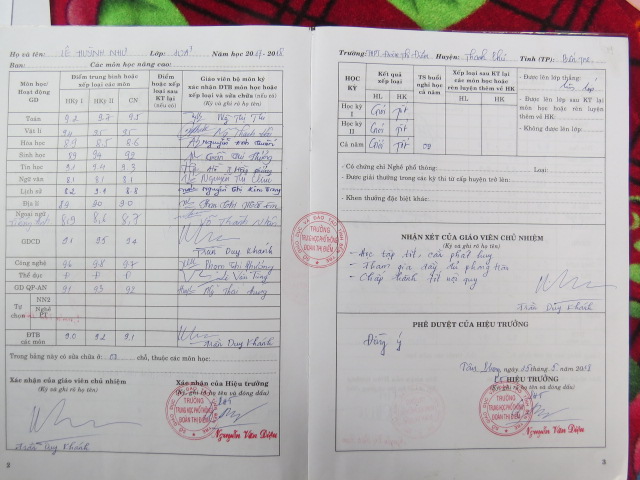 Họ và tên: LÊ HUỲNH NHƯ Lớp: 10A1 Năm học 2017-2018
Ban: Các môn học nâng cao:
Môn học/ Hoạt động GD
Điểm trung bình hoặc xếp loại các môn
HKỳ I HKỳ II CN
Điểm hoặc xếp loại sau KT lại (nếu có)
Giáo viên bộ môn ký xác nhận ĐTB môn học hoặc xếp loại và sửa chữa (nếu có)
(Ký và ghi rõ họ tên)
Toán 9.2 9.7 9.5
Vật lí 9.4 9.5 9.5
Hóa học 8.9 8.5 8.6
Sinh học 8.9 9.4 9.2
Tin học 9.1 9.4 9.3
Ngữ văn 8.1 8.1 8.1
Lịch sử 8.2 9.1 8.8
Địa lí 8.9 9.0 9.0
Ngoại ngữ 8.9 8.6 8.7
GDCD 9.1 9.5 9.4 Trần Duy Khánh
Công nghệ 9.4 9.8 9.7
Thể dục Đ Đ Đ
GD QP-AN 9.1 9.3 9.2
Tự chọn
NN2
Nghề PT
ĐTB các môn 9.0 9.2 9.1 Trần Duy Khánh
Trong bảng này có sửa chữa ở: 03 chỗ, thuộc các môn học:
Xác nhận của giáo viên chủ nhiệm
(Ký và ghi rõ họ tên)
Trần Duy Khánh
Xác nhận của Hiệu trưởng
(Ký, ghi rõ họ tên và đóng dấu)
TRƯỜNG
TRUNG HỌC PHỔ THÔNG
ĐOÀN THỊ ĐIỂM
Nguyễn Văn Điệu
3
Trường: THPT Đoàn Thị Điểm Huyện: Thạnh Phú Tỉnh (TP): Bến Tre
HỌC KỲ
Kết quả xếp loại
HL HK
TS buổi nghỉ học cả năm
Xếp loại sau KT lại các môn học hoặc rèn luyện thêm về HK
HL HK
Học kỳ I Giỏi Tốt
Học kỳ II Giỏi Tốt
Cả năm Giỏi Tốt 00
- Được lên lớp thẳng:
lên lớp
- Được lên lớp sau KT lại môn học hoặc rèn luyện thêm về HK:
- Không được lên lớp:
- Có chứng chỉ Nghề phổ thông:
- Được giải thưởng trong các kỳ thi từ cấp huyện trở lên:
- Khen thưởng đặc biệt khác:
TRƯỜNG
TRUNG HỌC PHỔ THÔNG
ĐOÀN THỊ ĐIỂM
NHẬN XÉT CỦA GIÁO VIÊN CHỦ NHIỆM
(Ký và ghi rõ họ tên)
- Học tập tốt, cần phát huy
- Tham gia đầy đủ phong trào
- Chấp hành tốt nội quy
Trần Duy Khánh
PHÊ DUYỆT CỦA HIỆU TRƯỞNG
Đồng ý
ngày 25 tháng 5 năm 2018
HIỆU TRƯỞNG
(Ký, ghi rõ họ tên và đóng dấu)
TRƯỜNG
TRUNG HỌC PHỔ THÔNG
ĐOÀN THỊ ĐIỂM
Nguyễn Văn Điệu
3